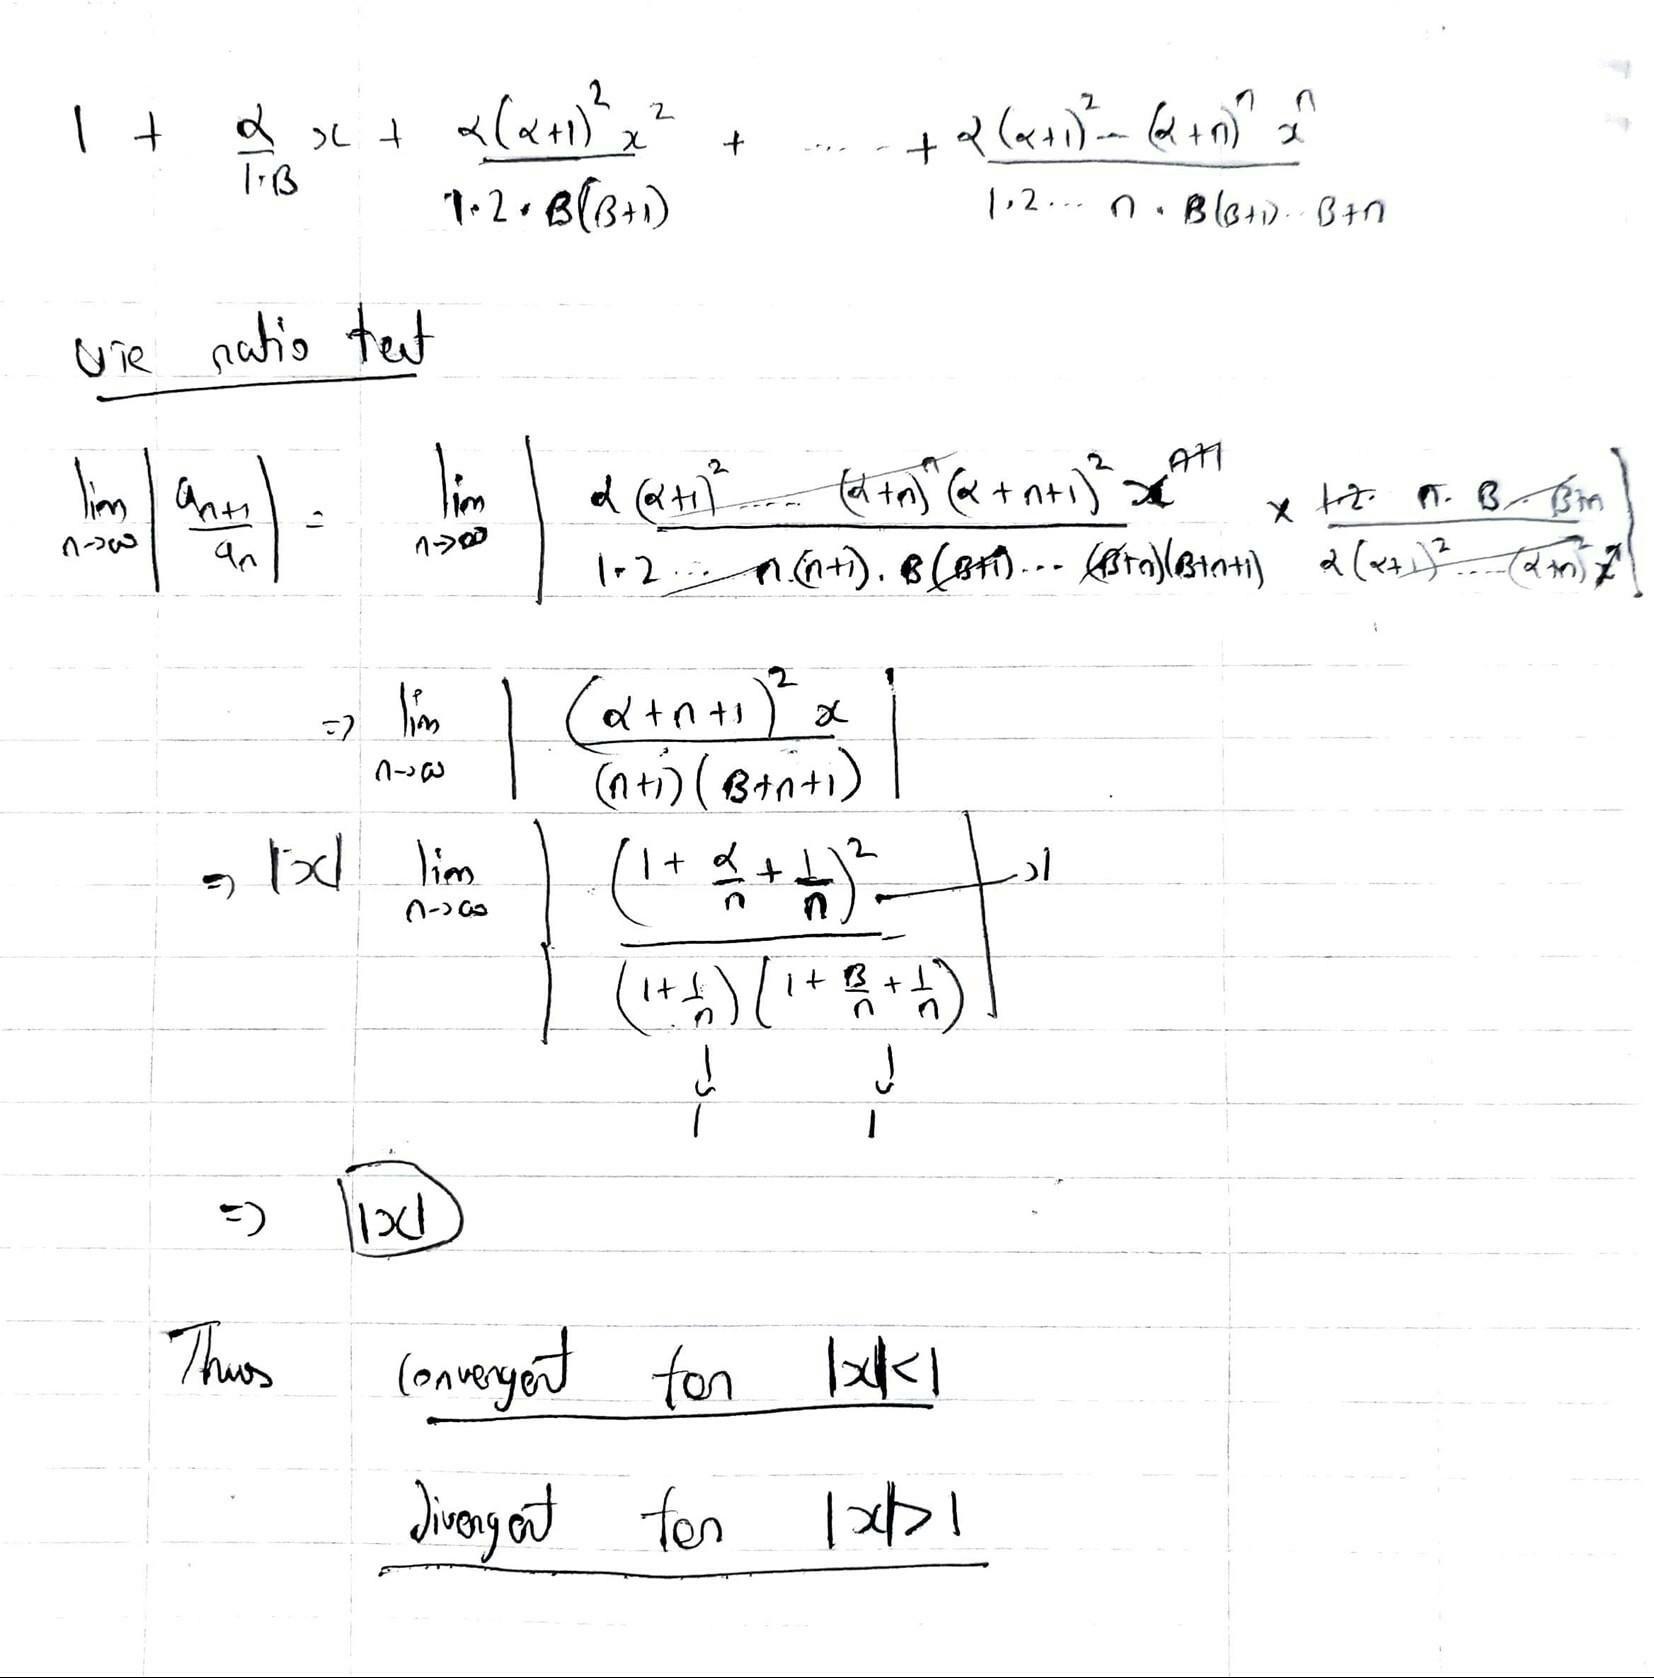 1 + α/1·β x + α(α+1)² x² / 1·2·β(β+1) + ..... + α(α+1)² -- (α+n)ⁿ xⁿ / 1.2... n . β(β+1).. β+n
use ratio test
lim n→∞ | aₙ₊₁ / aₙ | = lim n→∞ | α(α+1)² .... (α+n)ⁿ (α+n+1)² xⁿ⁺¹ / 1·2... n.(n+1). β(β+1)... (β+n)(β+n+1) × 1.2. n. β - β+n / α(α+1)² .... (α+n)² xⁿ |
=> lim n→∞ | (α+n+1)² x / (n+1)(β+n+1) |
=> |x| lim n→∞ | (1 + α/n + 1/n)² / (1+1/n)(1+β/n+1/n) | →1
↓ ↓
1 1
=> |x|
Thus convergent for |x|<1
divergent for |x|>1